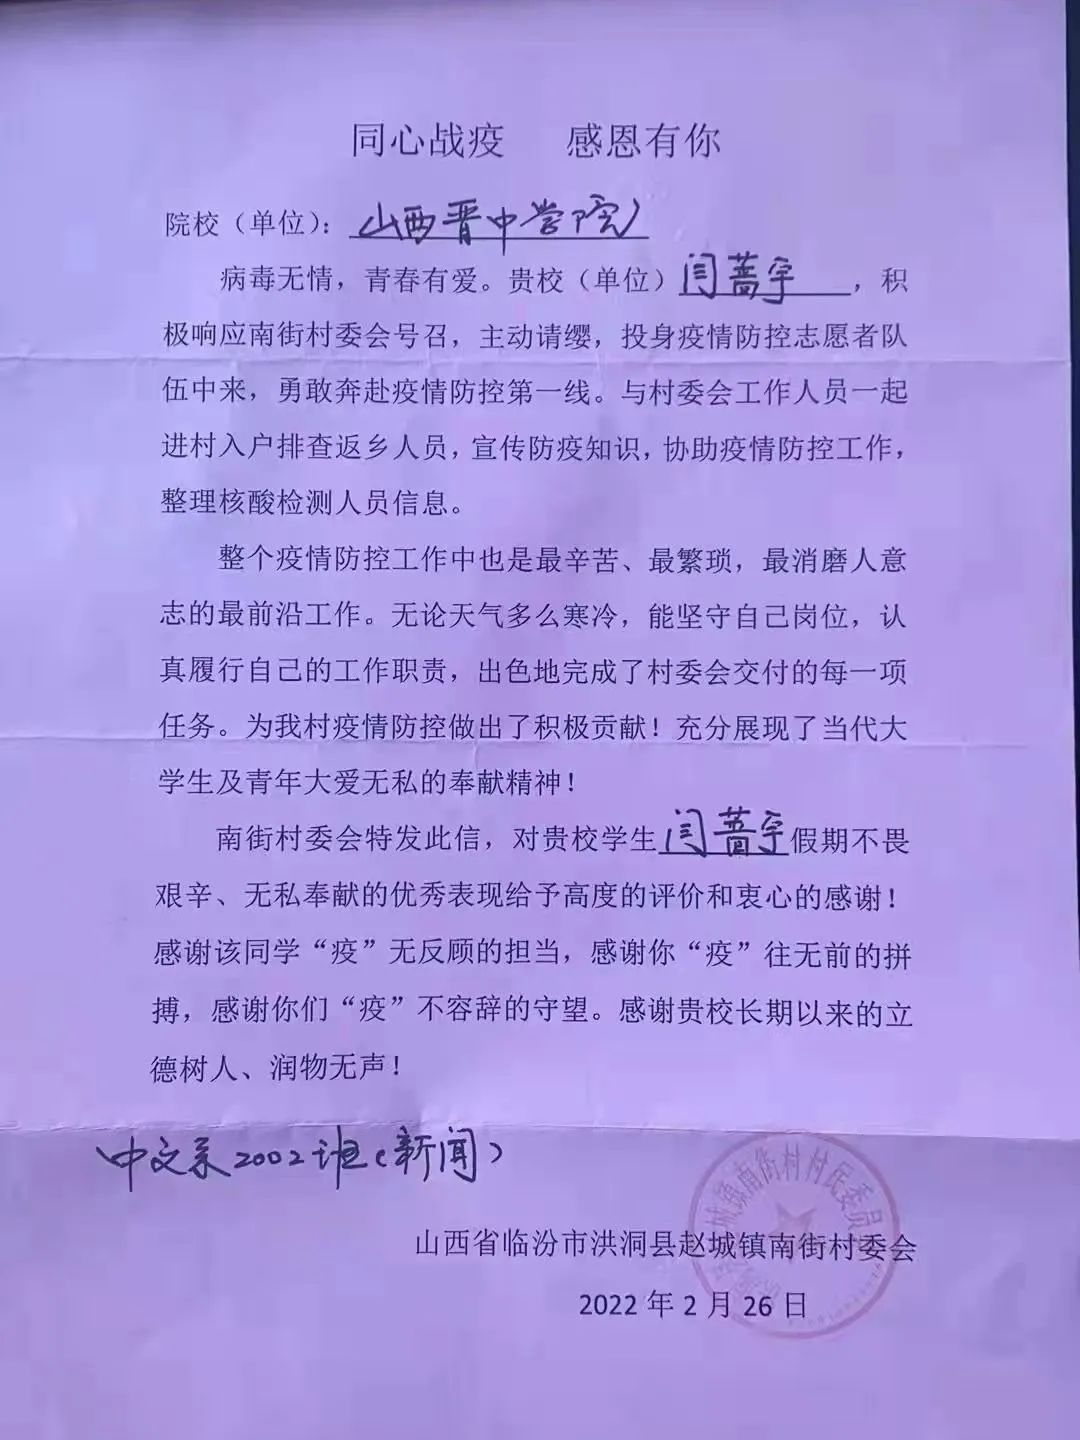 同心战疫 感恩有你
院校（单位）：山西晋中学院
病毒无情，青春有爱。贵校（单位）闫蔷宇，积
极响应南街村委会号召，主动请缨，投身疫情防控志愿者队
伍中来，勇敢奔赴疫情防控第一线。与村委会工作人员一起
进村入户排查返乡人员，宣传防疫知识，协助疫情防控工作，
整理核酸检测人员信息。
整个疫情防控工作中也是最辛苦、最繁琐，最消磨人意
志的最前沿工作。无论天气多么寒冷，能坚守自己岗位，认
真履行自己的工作职责，出色地完成了村委会交付的每一项
任务。为我村疫情防控做出了积极贡献！充分展现了当代大
学生及青年大爱无私的奉献精神！
南街村委会特发此信，对贵校学生闫蔷宇假期不畏
艰辛、无私奉献的优秀表现给予高度的评价和衷心的感谢！
感谢该同学“疫”无反顾的担当，感谢你“疫”往无前的拼
搏，感谢你们“疫”不容辞的守望。感谢贵校长期以来的立
德树人、润物无声！
中文系2002班（新闻）
城镇南街村村民委员
山西省临汾市洪洞县赵城镇南街村委会
2022年2月26日